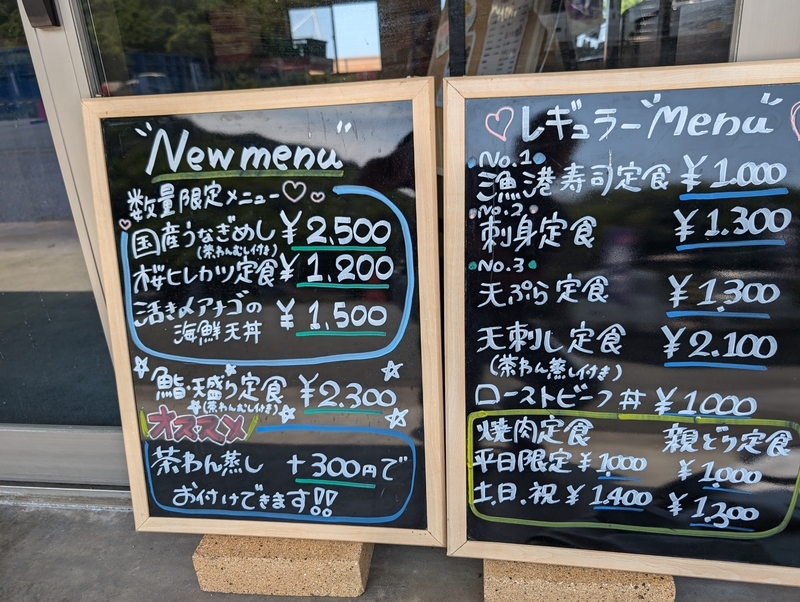 "New menu"
数量限定メニュー♡♡
国産うなぎめし ¥2,500
(茶わんむし付き)
桜ヒレカツ定食 ¥1,200
活き〆アナゴの
海鮮天丼 ¥1,500
鮨・天盛り定食 ¥2,300
(茶わんむし付き)
オススメ
茶わん蒸し +300円で
お付けできます!!
♡レギュラー"Menu"♡
No.1
漁港寿司定食 ¥1.000
No.2
刺身定食 ¥1.300
No.3
天ぷら定食 ¥1,300
天刺し定食 ¥2.100
(茶わん蒸し付き)
ローストビーフ丼 ¥1000
焼肉定食
平日限定 ¥1000
土.日.祝 ¥1,400
親どり定食
¥1,000
¥1,300